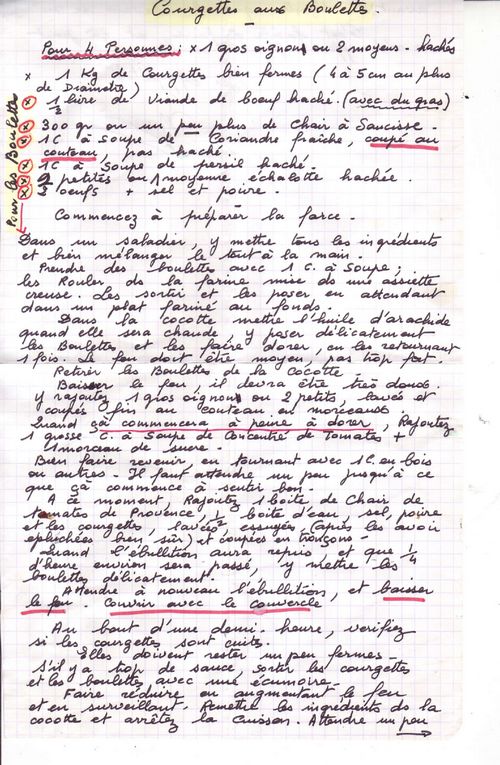 Courgettes aux Boulettes.
Pour 4 Personnes: x 1 gros oignons ou 2 moyens - hachés
x 1 Kg de Courgettes bien fermes (4 à 5 cm au plus
de Diamètre)
x 1/2 livre de Viande de boeuf haché. (avec du gras)
x 300 gr ou un peu plus de Chair à Saucisse.
x 1C. à Soupe de Coriandre fraîche, coupé au
couteau, pas haché.
x 1C à Soupe de persil haché.
x 2 petites ou 1 moyenne échalotte hachée.
x 3 oeufs + sel et poivre.
Pour les Boulettes
Commencez à préparer la farce.
Dans un saladier, y mettre tous les ingrédients
et bien mélanger le tout à la main.
Prendre des boulettes avec 1 C. à Soupe,
les Rouler ds la farine mise ds une assiette
creuse. Les sortir et les poser en attendant
dans un plat fariné au fond.
Dans la cocotte mettre l'huile d'arachide
quand elle sera chaude y poser délicatement
les Boulettes et les faire dorer, en les retournant
1 fois. Le feu doit être moyen, pas trop fort.
Retirer les Boulettes de la Cocotte.
Baisser le feu, il devra être très doux.
y rajoutez 1 gros oignons ou 2 petits, lavés et
coupés fin au couteau en morceaux.
Quand çà commencera à peine à dorer, Rajoutez
1 grosse C. à Soupe de Concentré de Tomates +
1 morceau de sucre.
Bien faire revenir en tournant avec 1C. en bois
ou autres. Il faut attendre un peu jusqu'à ce
que çà commence à sentir bon.
A ce moment, Rajoutez 1 boite de Chair de
tomates de Provence, 1/2 boite d'eau, sel, poivre
et les courgettes, lavées, essuyées (après les avoir
épluchées bien sûr) et coupées en tronçons -
Quand l'ébullition aura repris, et que 1/4
d'heure environ sera passé, y mettre les
boulettes délicatement.
Attendre à nouveau l'ébullition, et baisser
le feu. Couvrir avec le couvercle
Au bout d'une demi-heure, vérifiez
si les courgettes sont cuites.
Elles doivent rester un peu fermes -
S'il y a trop de sauce, sortir les courgettes
et les boulettes avec une écumoire.
Faire réduire en augmentant le feu
et en surveillant. Remettre les ingrédients ds la
cocotte et arrêtez la Cuisson. Attendre un peu